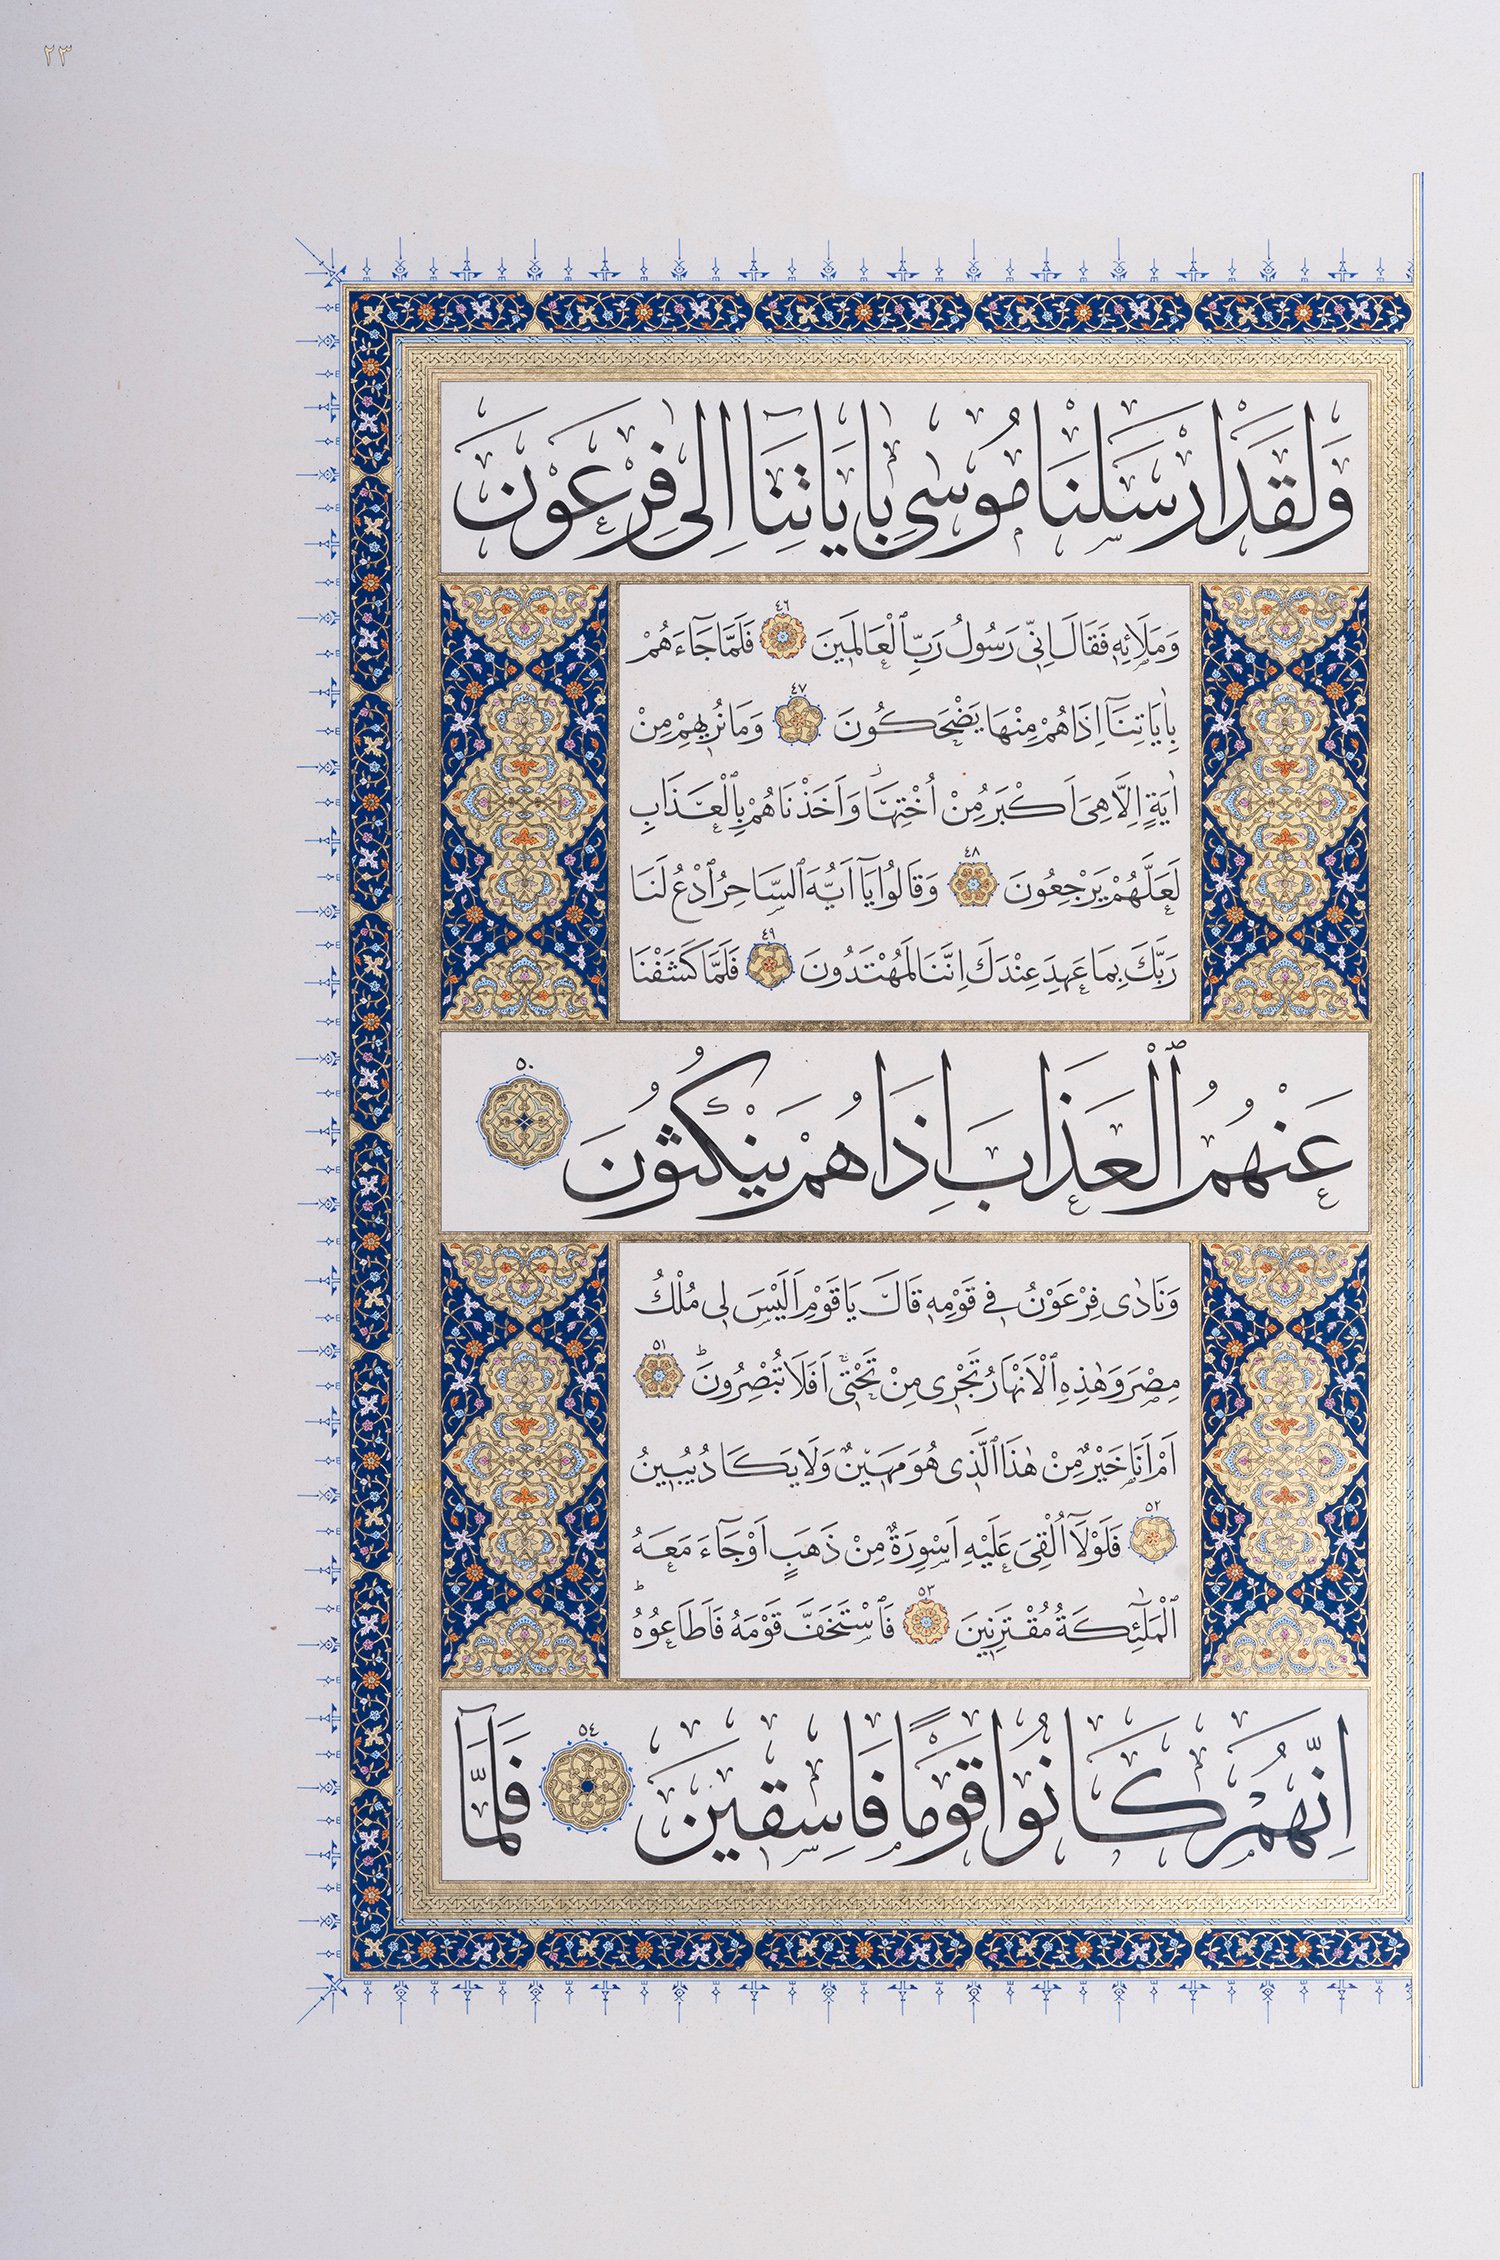 ٢٣
وَلَقَدْ اَرْسَلْنَا مُوسٰى بِاٰيَاتِنَٓا اِلٰى فِرْعَوْنَ
وَمَلَا۬ئِه۪ فَقَالَ اِنّ۪ي رَسُولُ رَبِّ الْعَالَم۪ينَ ٤٦ فَلَمَّا جَٓاءَهُمْ
بِاٰيَاتِنَٓا اِذَا هُمْ مِنْهَا يَضْحَكُونَ ٤٧ وَمَا نُر۪يهِمْ مِنْ
اٰيَةٍ اِلَّا هِيَ اَكْبَرُ مِنْ اُخْتِهَاۘ وَاَخَذْنَاهُمْ بِالْعَذَابِ
لَعَلَّهُمْ يَرْجِعُونَ ٤٨ وَقَالُوا يَٓا اَيُّهَ السَّاحِرُ ادْعُ لَنَا
رَبَّكَ بِمَا عَهِدَ عِنْدَكَ اِنَّنَا لَمُهْتَدُونَ ٤٩ فَلَمَّا كَشَفْنَا
عَنْهُمُ الْعَذَابَ اِذَا هُمْ يَنْكُثُونَ ٥٠
وَنَادٰى فِرْعَوْنُ ف۪ي قَوْمِه۪ قَالَ يَا قَوْمِ اَلَيْسَ ل۪ي مُلْكُ
مِصْرَ وَهٰذِهِ الْاَنْهَارُ تَجْر۪ي مِنْ تَحْت۪يۚ اَفَلَا تُبْصِرُونَۜ ٥١
اَمْ اَنَا خَيْرٌ مِنْ هٰذَا الَّذ۪ي هُوَ مَه۪ينٌ وَلَا يَكَادُ يُب۪ينُ
٥٢ فَلَوْلَٓا اُلْقِيَ عَلَيْهِ اَسْوِرَةٌ مِنْ ذَهَبٍ اَوْ جَٓاءَ مَعَهُ
الْمَلٰٓئِكَةُ مُقْتَرِن۪ينَ ٥٣ فَاسْتَخَفَّ قَوْمَهُ فَاَطَاعُوهُۜ
اِنَّهُمْ كَانُوا قَوْمًا فَاسِق۪ينَ ٥٤ فَلَمَّٓا